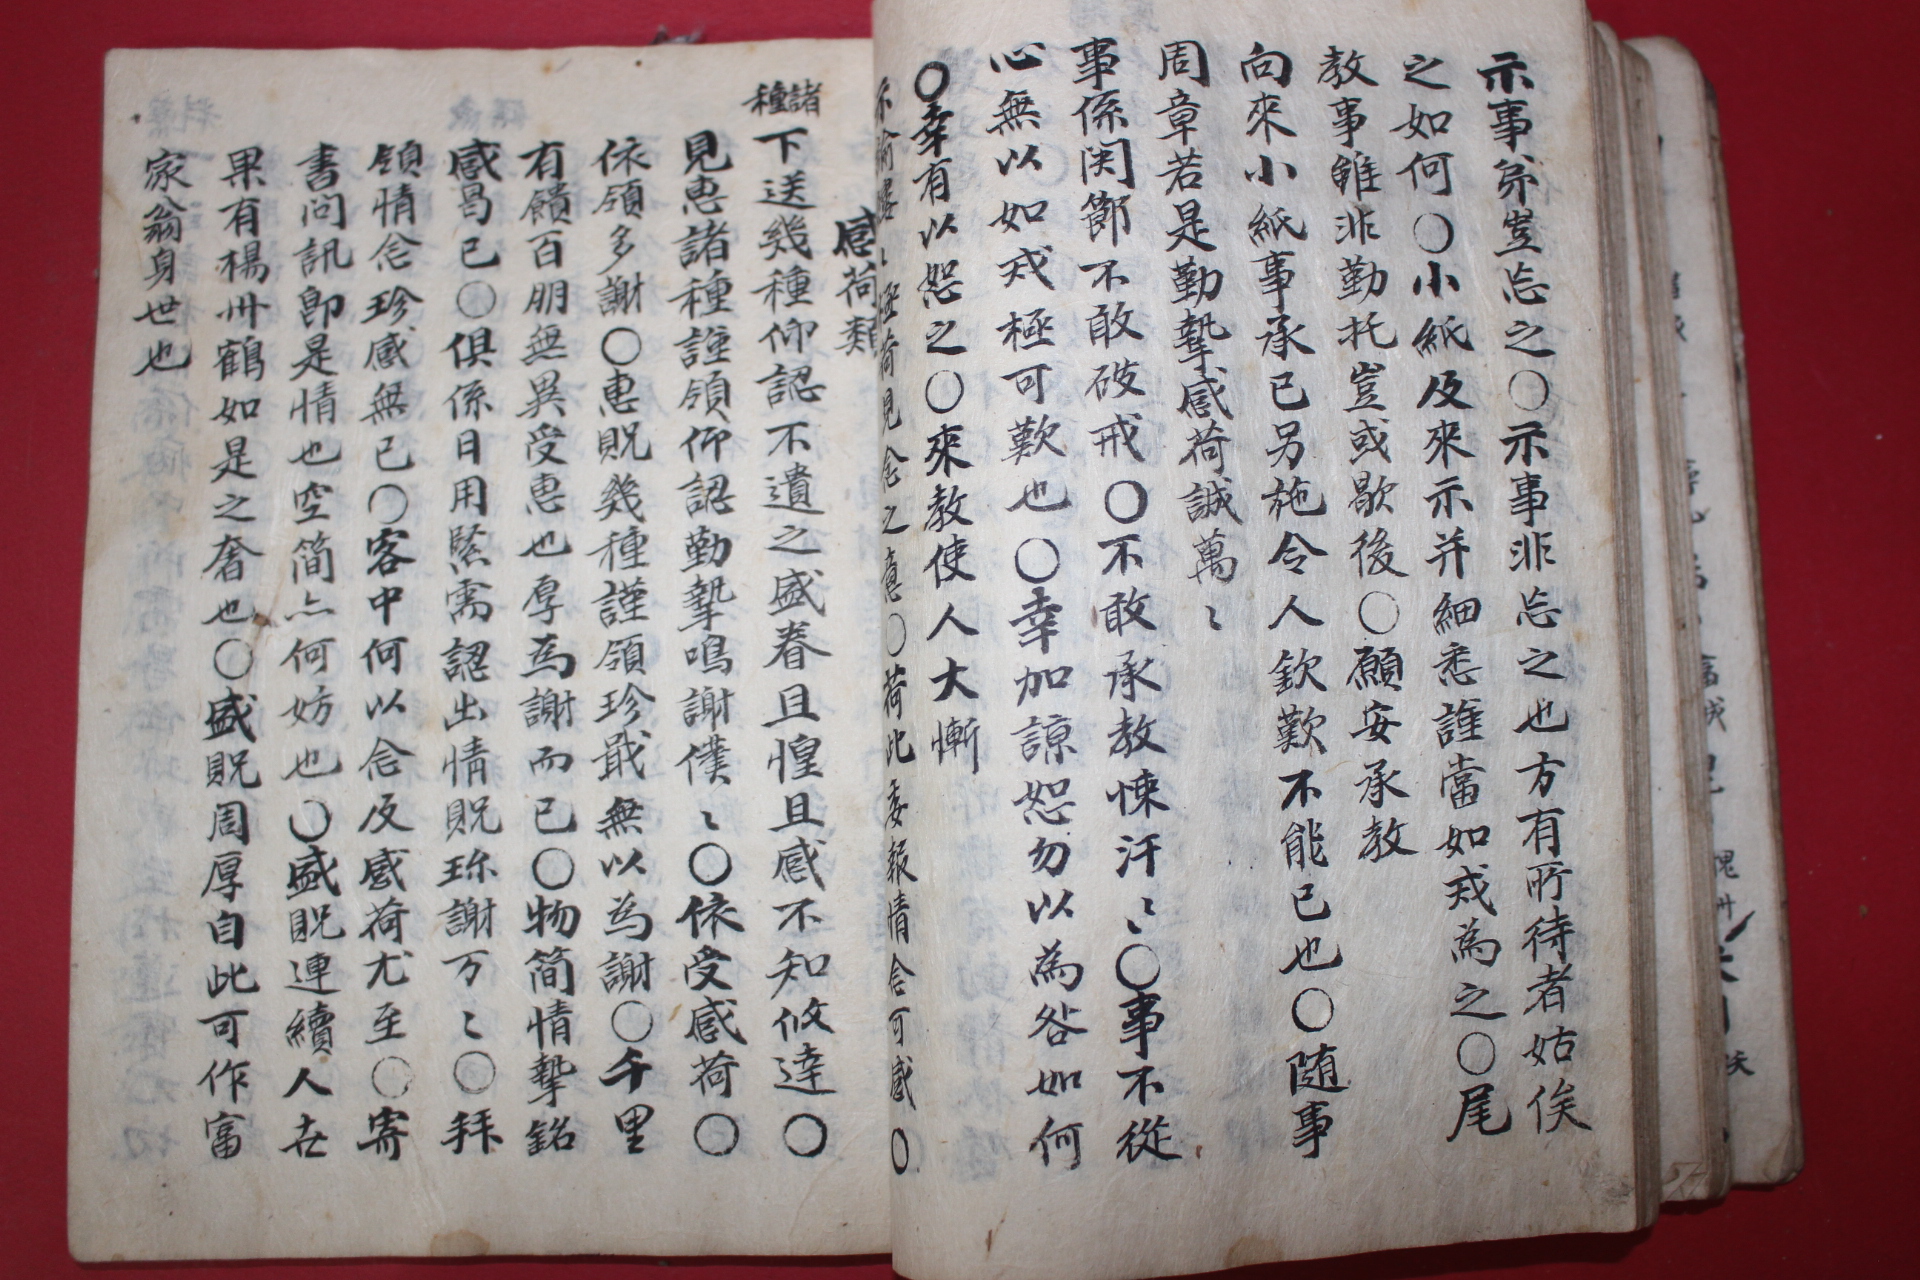 示事弟豈忘之○示事非忘之也方有所待者姑俟
之如何○小紙及來示并細悉謹當如戒為之○尾
教事雖非勤托豈或歇後○願安承教
向來小紙事承已另施令人欽歎不能已也○随事
周章若是勤摯感荷誠萬〻
事係関節不敢破戒○不敢承教悚汗〻○事不從
心無以如戒極可歎也○幸加諒恕勿以為咎如何
○幸有以恕之○來教使人大慚
荷見念之○荷此委報情念可感○
感荷類
諸種
下送幾種仰認不遺之盛眷且惶且感不知攸達○
見惠諸種謹領仰認勤摯鳴謝僕〻○依受感荷○
依領多謝○惠貺幾種謹領珍戢無以為謝○千里
有饋百朋無異受惠也厚為謝而已○物简情摯銘
感曷已○俱係日用緊需認出情貺珎謝万〻○拜
領情念珍感無已○客中何以念及感荷尤至○寄
書问訊卽是情也空简亦何妨也○盛貺連續人去
果有楊州鶴如是之奢也○盛貺周厚自此可作富
家翁身世也